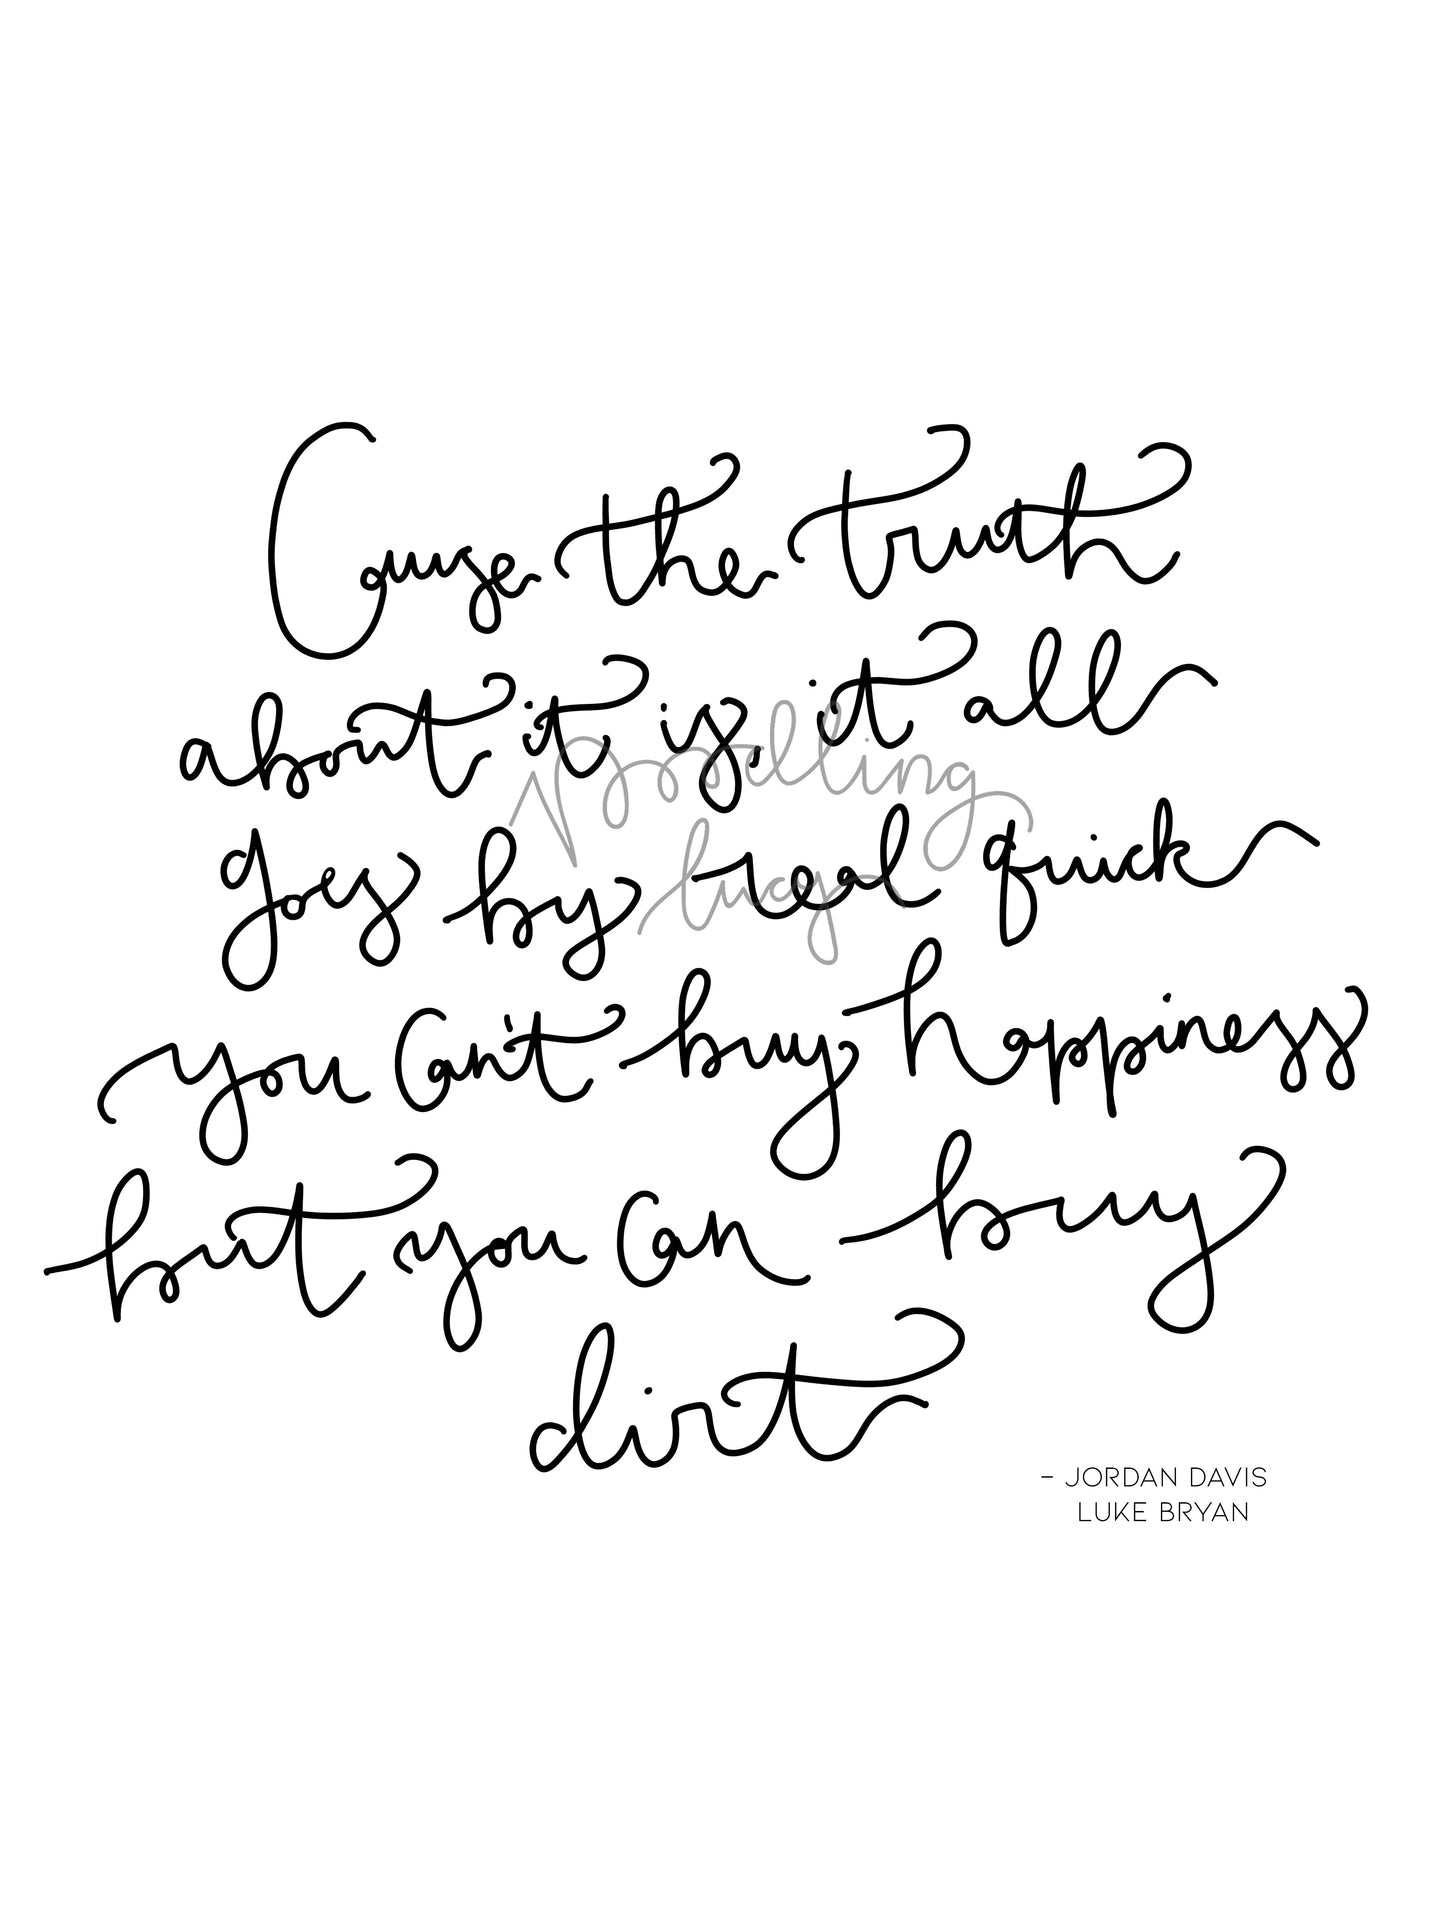 Cause the truth
about it is, it all
goes by real quick
you can't buy happiness
but you can buy
dirt
- JORDAN DAVIS
LUKE BRYAN
Noodling
lucy